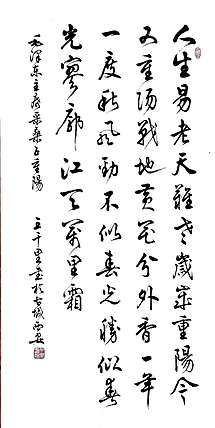 人生易老天難老歲歲重陽今
又重陽戰地黃花分外香一年
一度秋風勁不似春光勝似春
光寥廓江天萬里霜
毛澤東主席采桑子重陽
王千里書於古城西安